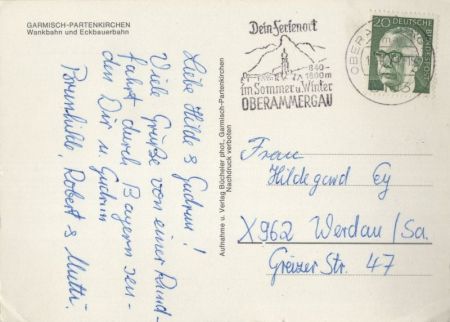 GARMISCH-PARTENKIRCHEN
Wankbahn und Eckbauerbahn
Liebe Hilde & Gudrun!
Viele Grüße von einer Rund-
fahrt durch Bayern sen-
den Dir u. Gudrun
Brunhilde, Robert & Mutti.
Aufnahme u. Verlag Bücheler phot., Garmisch-Partenkirchen
Nachdruck verboten
Dein Ferienort
840-
1600m
im Sommer u. Winter
OBERAMMERGAU
OBERAMMERGAU
20 DEUTSCHE
BUNDESPOST
Frau
Hildegard Ey
X962 Werdau/Sa.
Greizer Str. 47